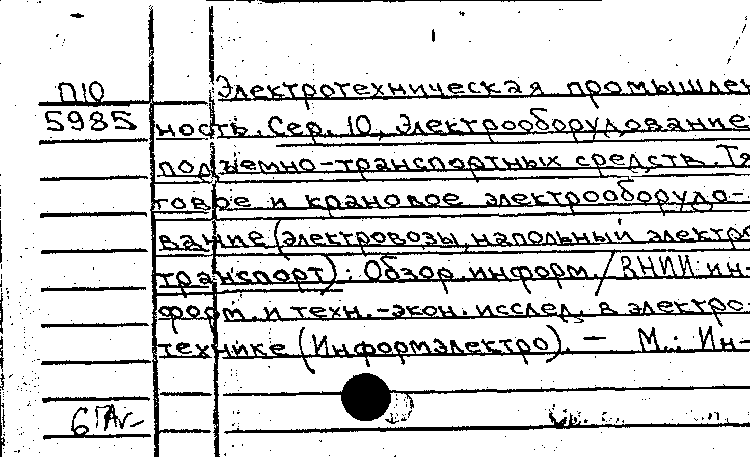 П10 Электротехническая промышлен
5985 ность. Сер. 10, Электрооборудование
подъемно-транспортных средств. Тя
говое и крановое электрооборудо-
вание (электровозы, напольный электро
транспорт): Обзор. информ. / ВНИИ ин-
форм. и техн.-экон. исслед. в электро-
технике (Информэлектро). — М.: Ин-